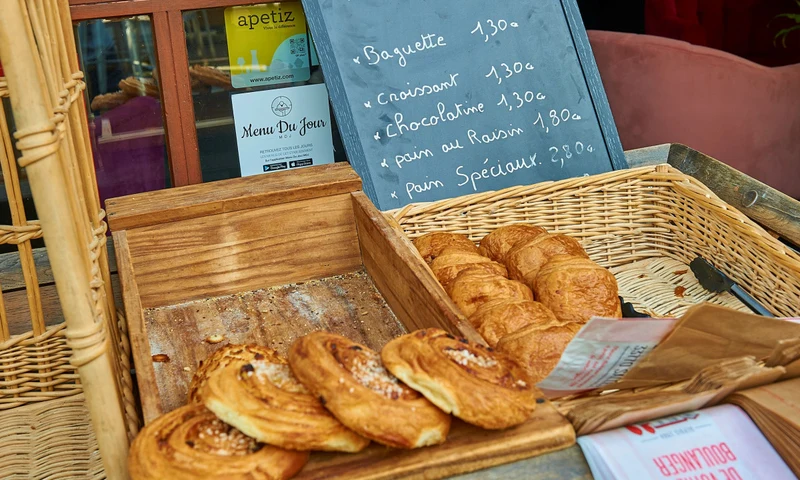 apetiz
www.apetiz.com
Menu Du Jour
MDJ
Google Play
App Store
*Baguette 1,30€
*croissant 1,30€
*chocolatine 1,30€
*pain au Raisin 1,80€
*pain Spéciaux. 2,80€
BOULANGER